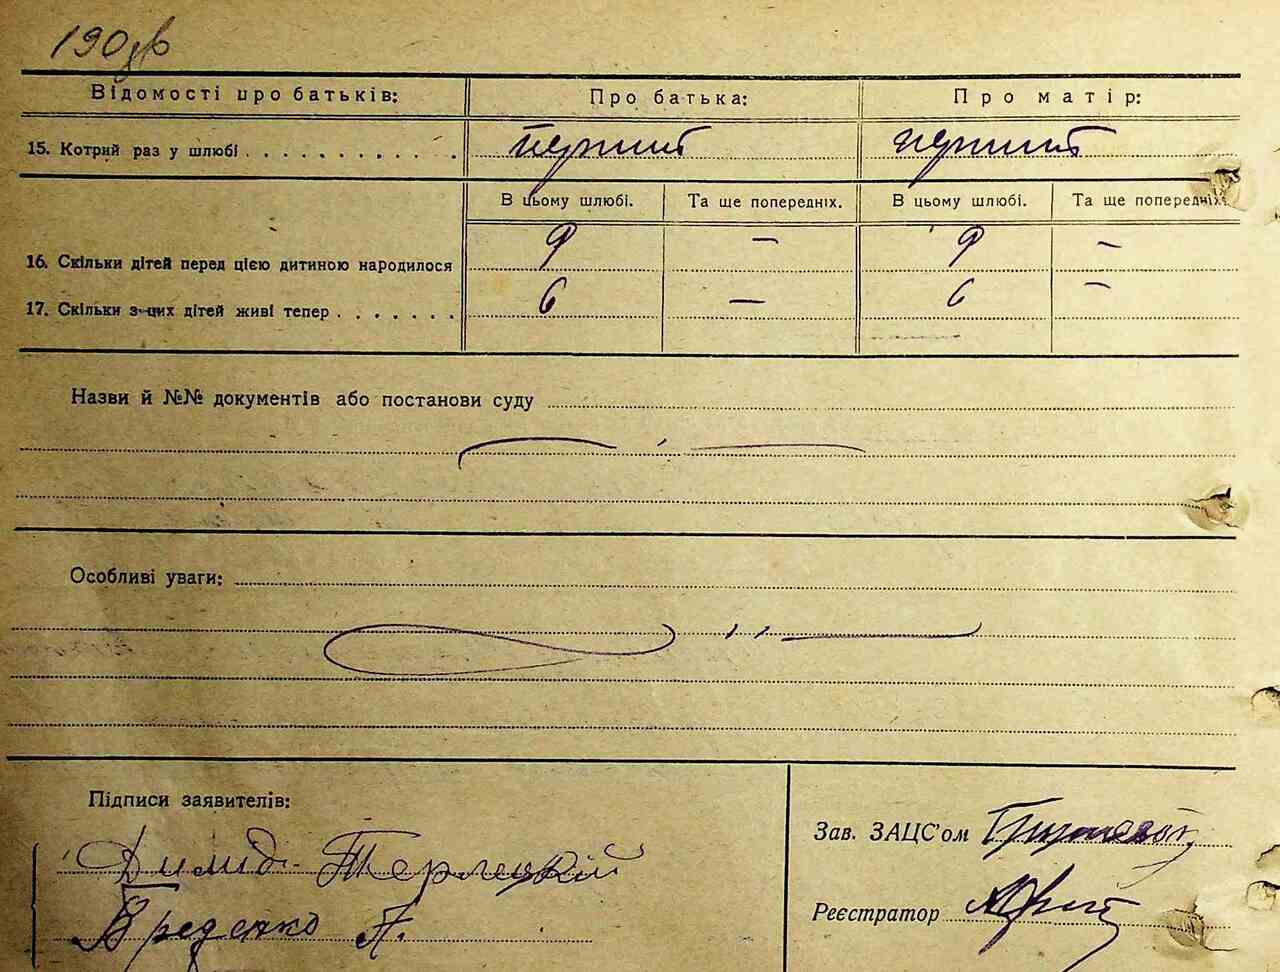 190зв
Відомості про батьків: Про батька: Про матір:
15. Котрий раз у шлюбі . . . . . . . . . . . . перший перший
В цьому шлюбі. Та ще попередніх. В цьому шлюбі. Та ще попередніх.
16. Скільки дітей перед цією дитиною народилося 9 — 9 —
17. Скільки з цих дітей живі тепер . . . . . . . 6 — 6 —
Назви й №№ документів або постанови суду
Особливі уваги:
Підписи заявителів:
Зав. ЗАЦС'ом
Димид. Терлецкій
Реєстратор
Вреденко А.